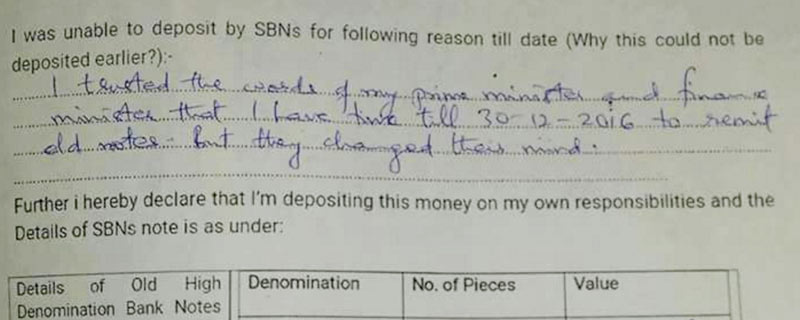 I was unable to deposit by SBNs for following reason till date (Why this could not be
deposited earlier?):-
I trusted the words of my prime minister and finance
minister that I have time till 30-12-2016 to remit
old notes. But they changed their mind.
Further i hereby declare that I'm depositing this money on my own responsibilities and the
Details of SBNs note is as under:
Details of Old High Denomination No. of Pieces Value
Denomination Bank Notes